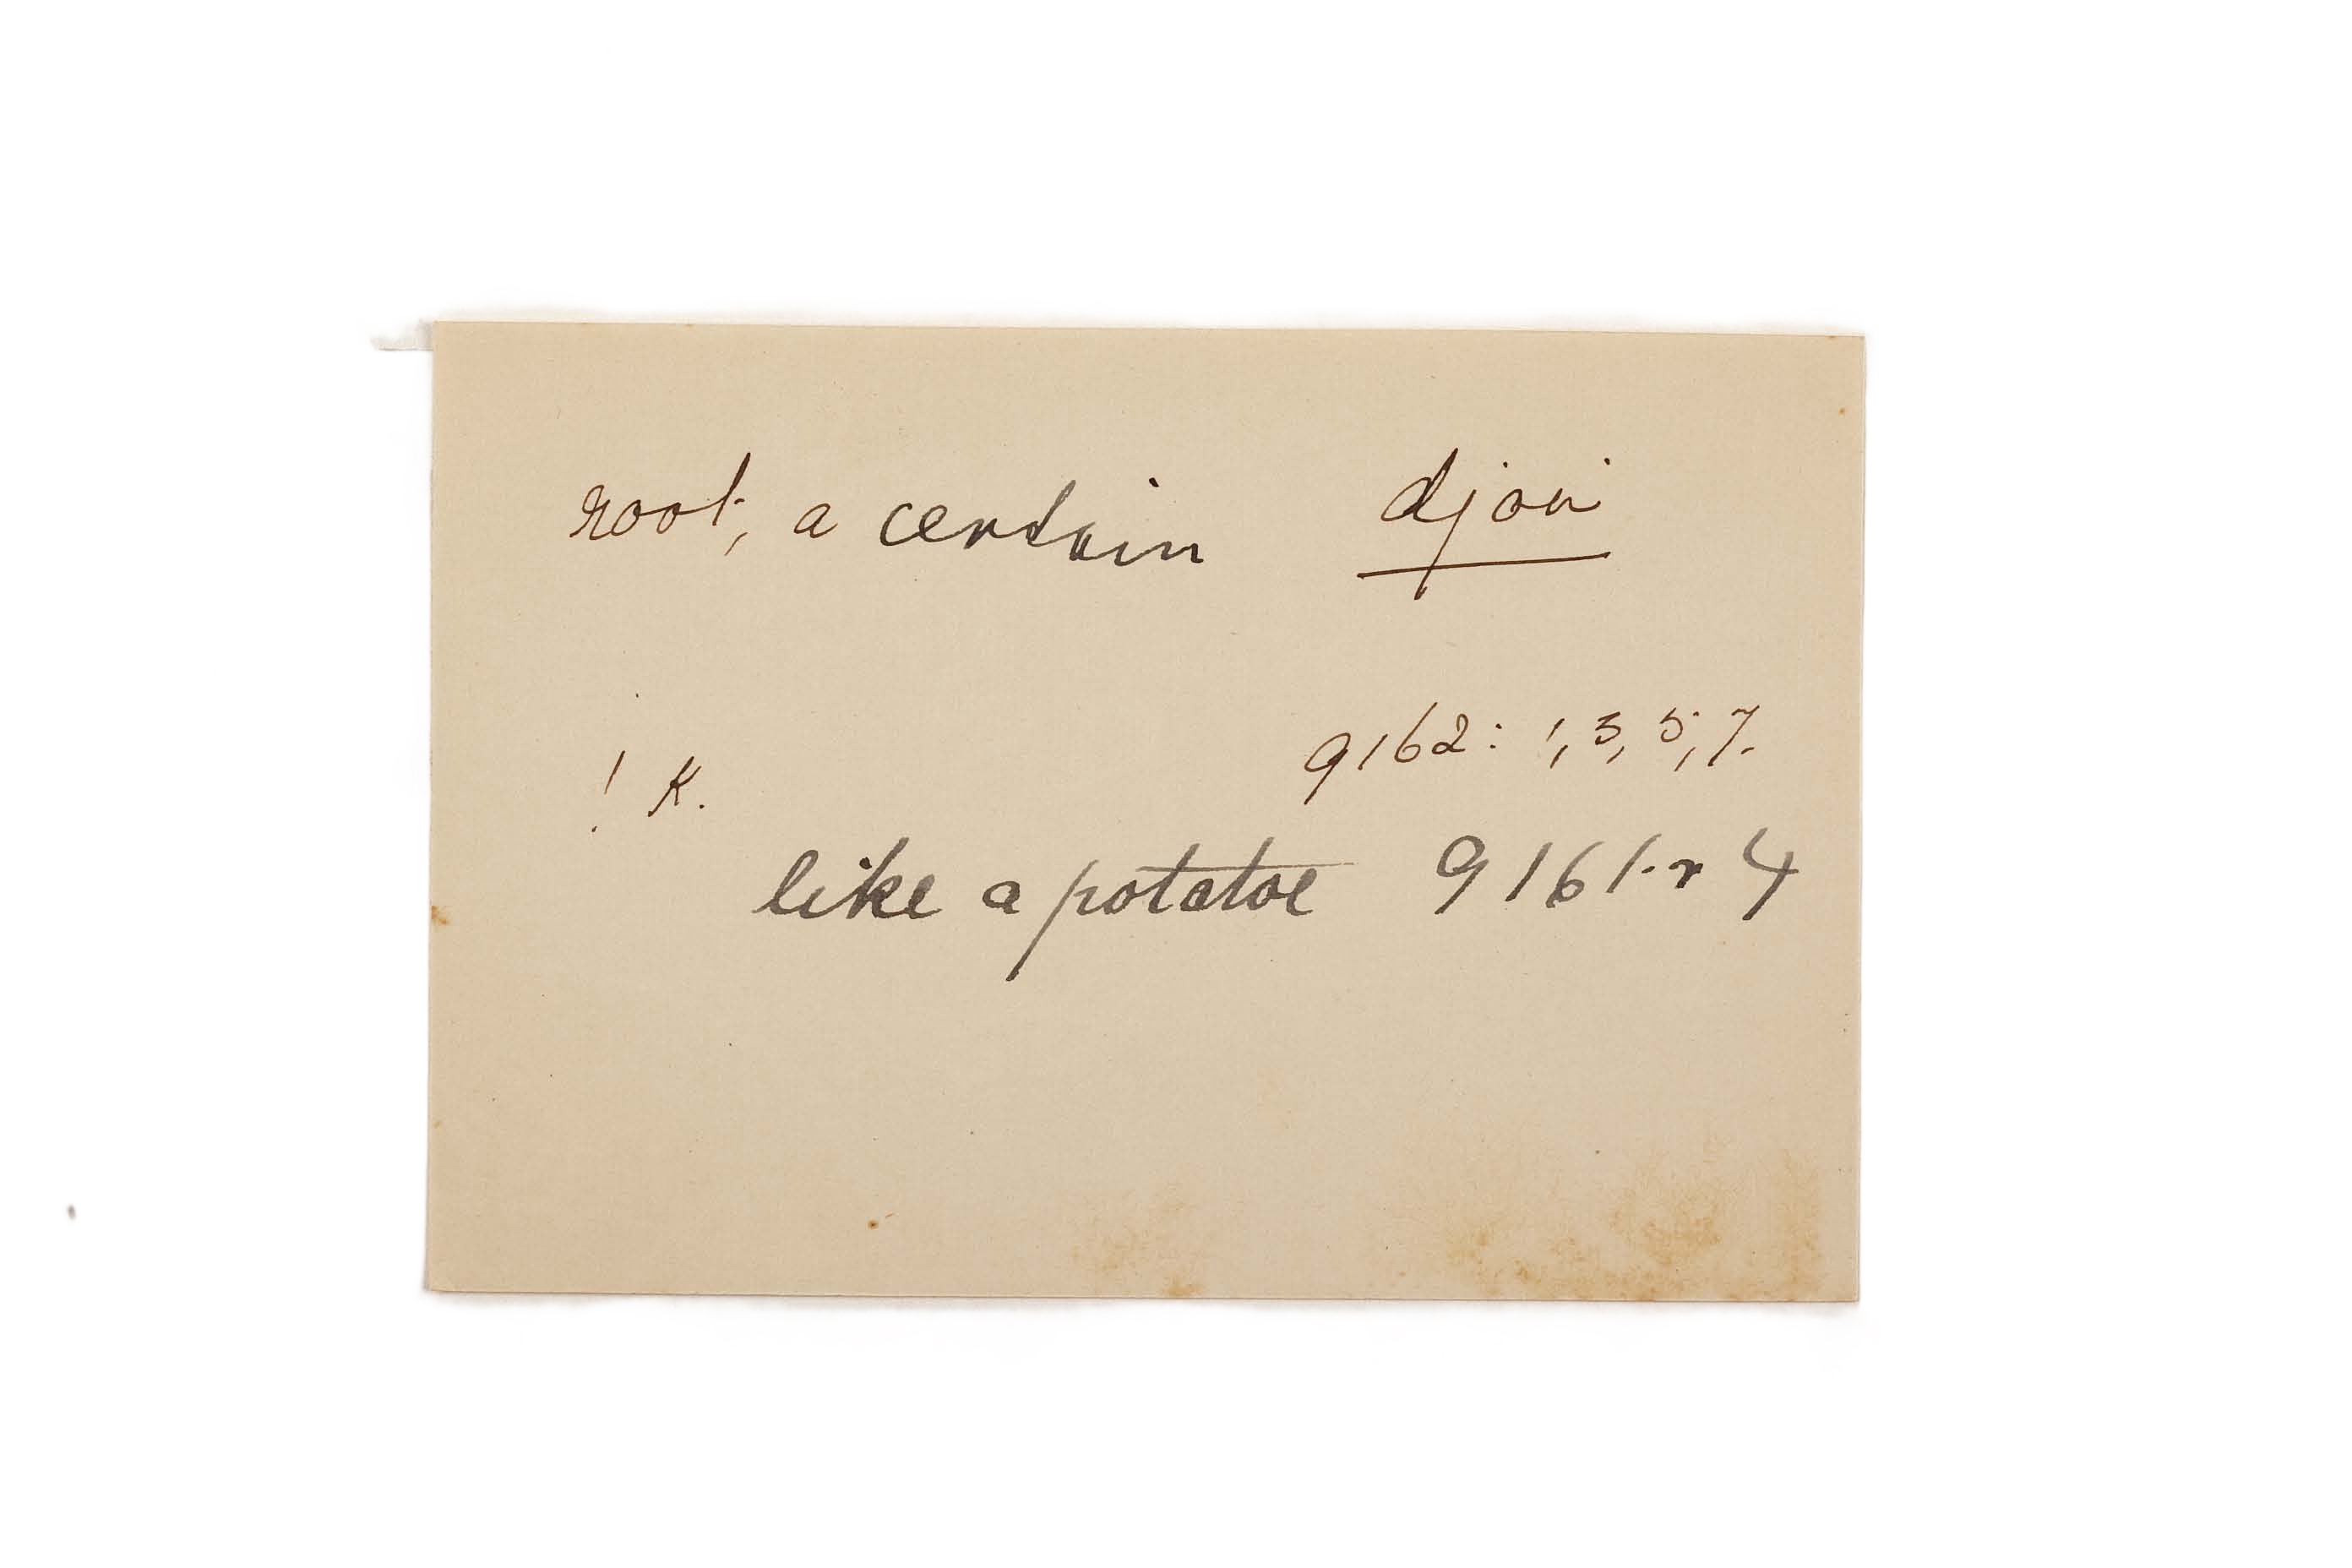 root, a certain djoui
9162: 1, 3, 5, 7.
! K.
like a potatoe 9161. r 4